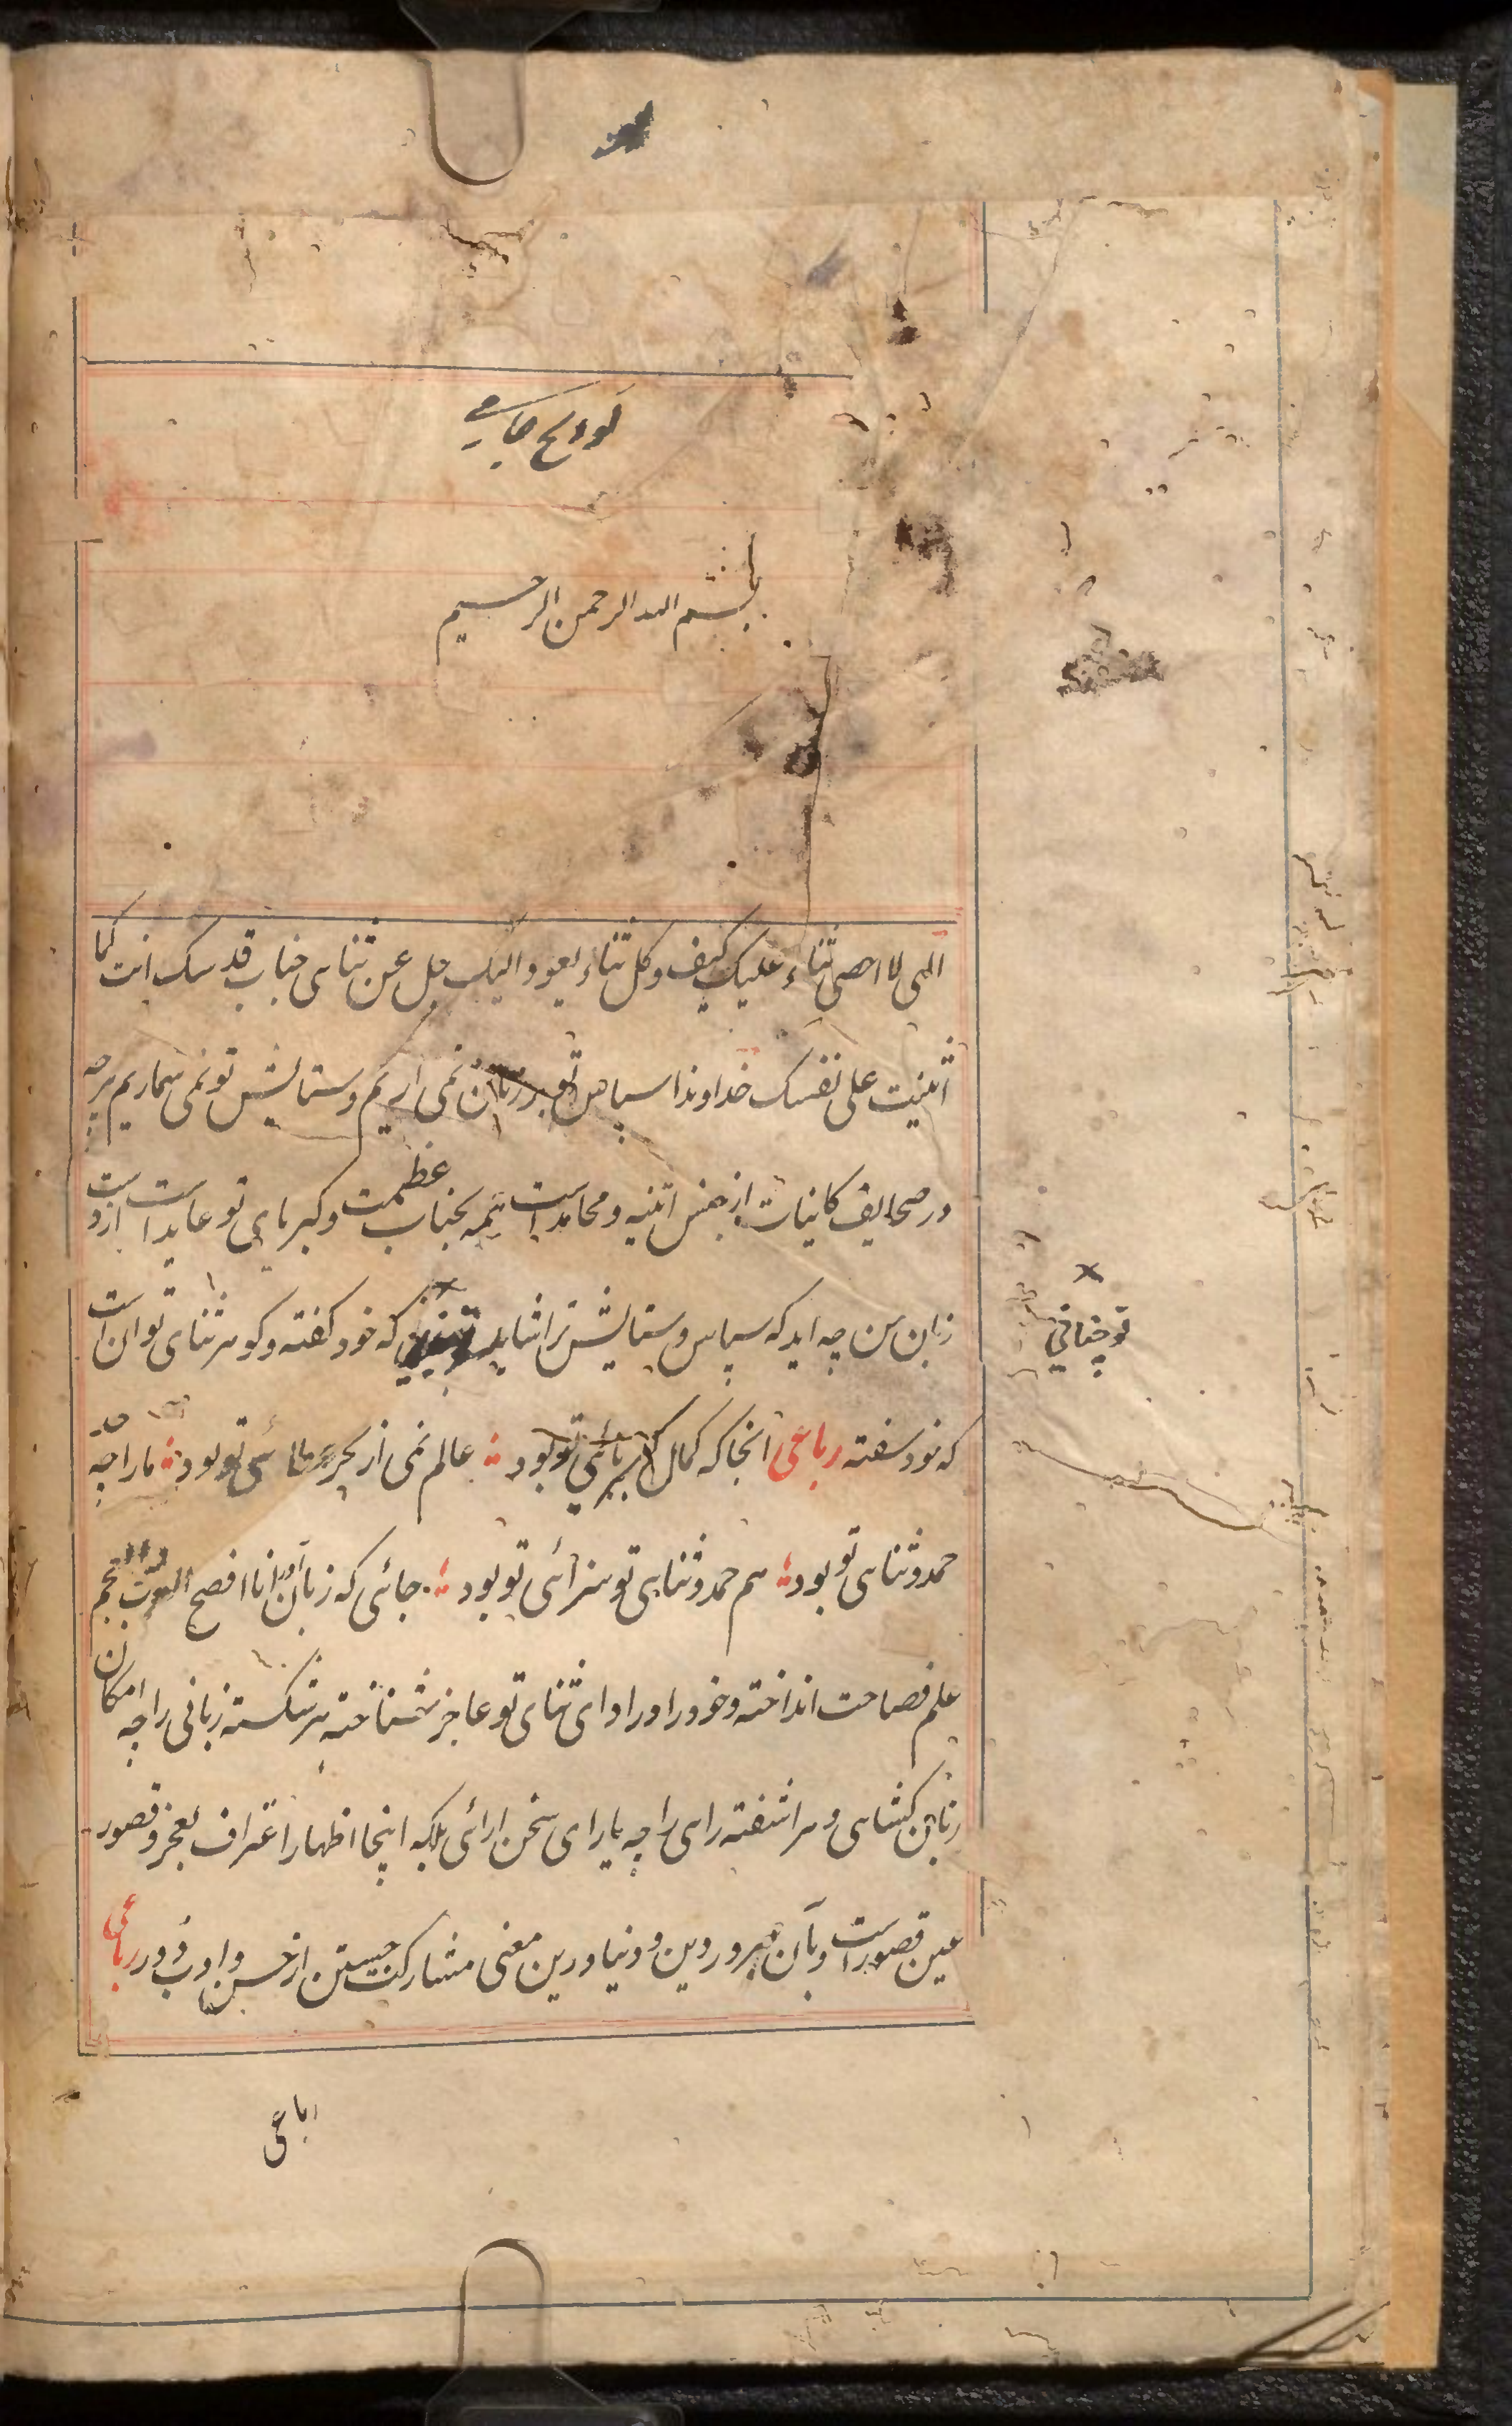 لوایح جامی
بسم الله الرحمن الرحیم
الهی لا احصی ثناء علیک کیف وکل ثناء یعود الیک جل عن ثنای جناب قدسک انت کما
اثنیت علی نفسک خداوندا سپاس تو بر زبان نمی اریم و ستایش تو نمی شماریم هرچه
در صحایف کاینات از جنس اثنیه و محامد است همه بجناب عظمت و کبریای تو عاید است از دو
زبان من چه اید که سپاس و ستایش ترا شاید که خود گفته و گوهر ثنای تو ان است
تو چنانی
که خود سفته رباعی انجا که کمال کبریائی تو بود عالم نمی از بحر عطائی تو بود ما را چه حد
حمد و ثنای تو بود هم حمد و ثنای تو سزائی تو بود جائی که زبان اور انا افصح العرب و العجم
علم فصاحت انداخته و خود را در ادای ثنای تو عاجز شناخته هر شکسته زبانی را چه امکان
زبان کشای و هر اشفته رای را چه یارای سخن ارائی بلکه اینجا اظهار اعتراف بعجز و قصور
عین قصور است و بآن سرور دین و دنیا درین معنی مشارکت جستن از حسن ادب دور رباعی
رباعی